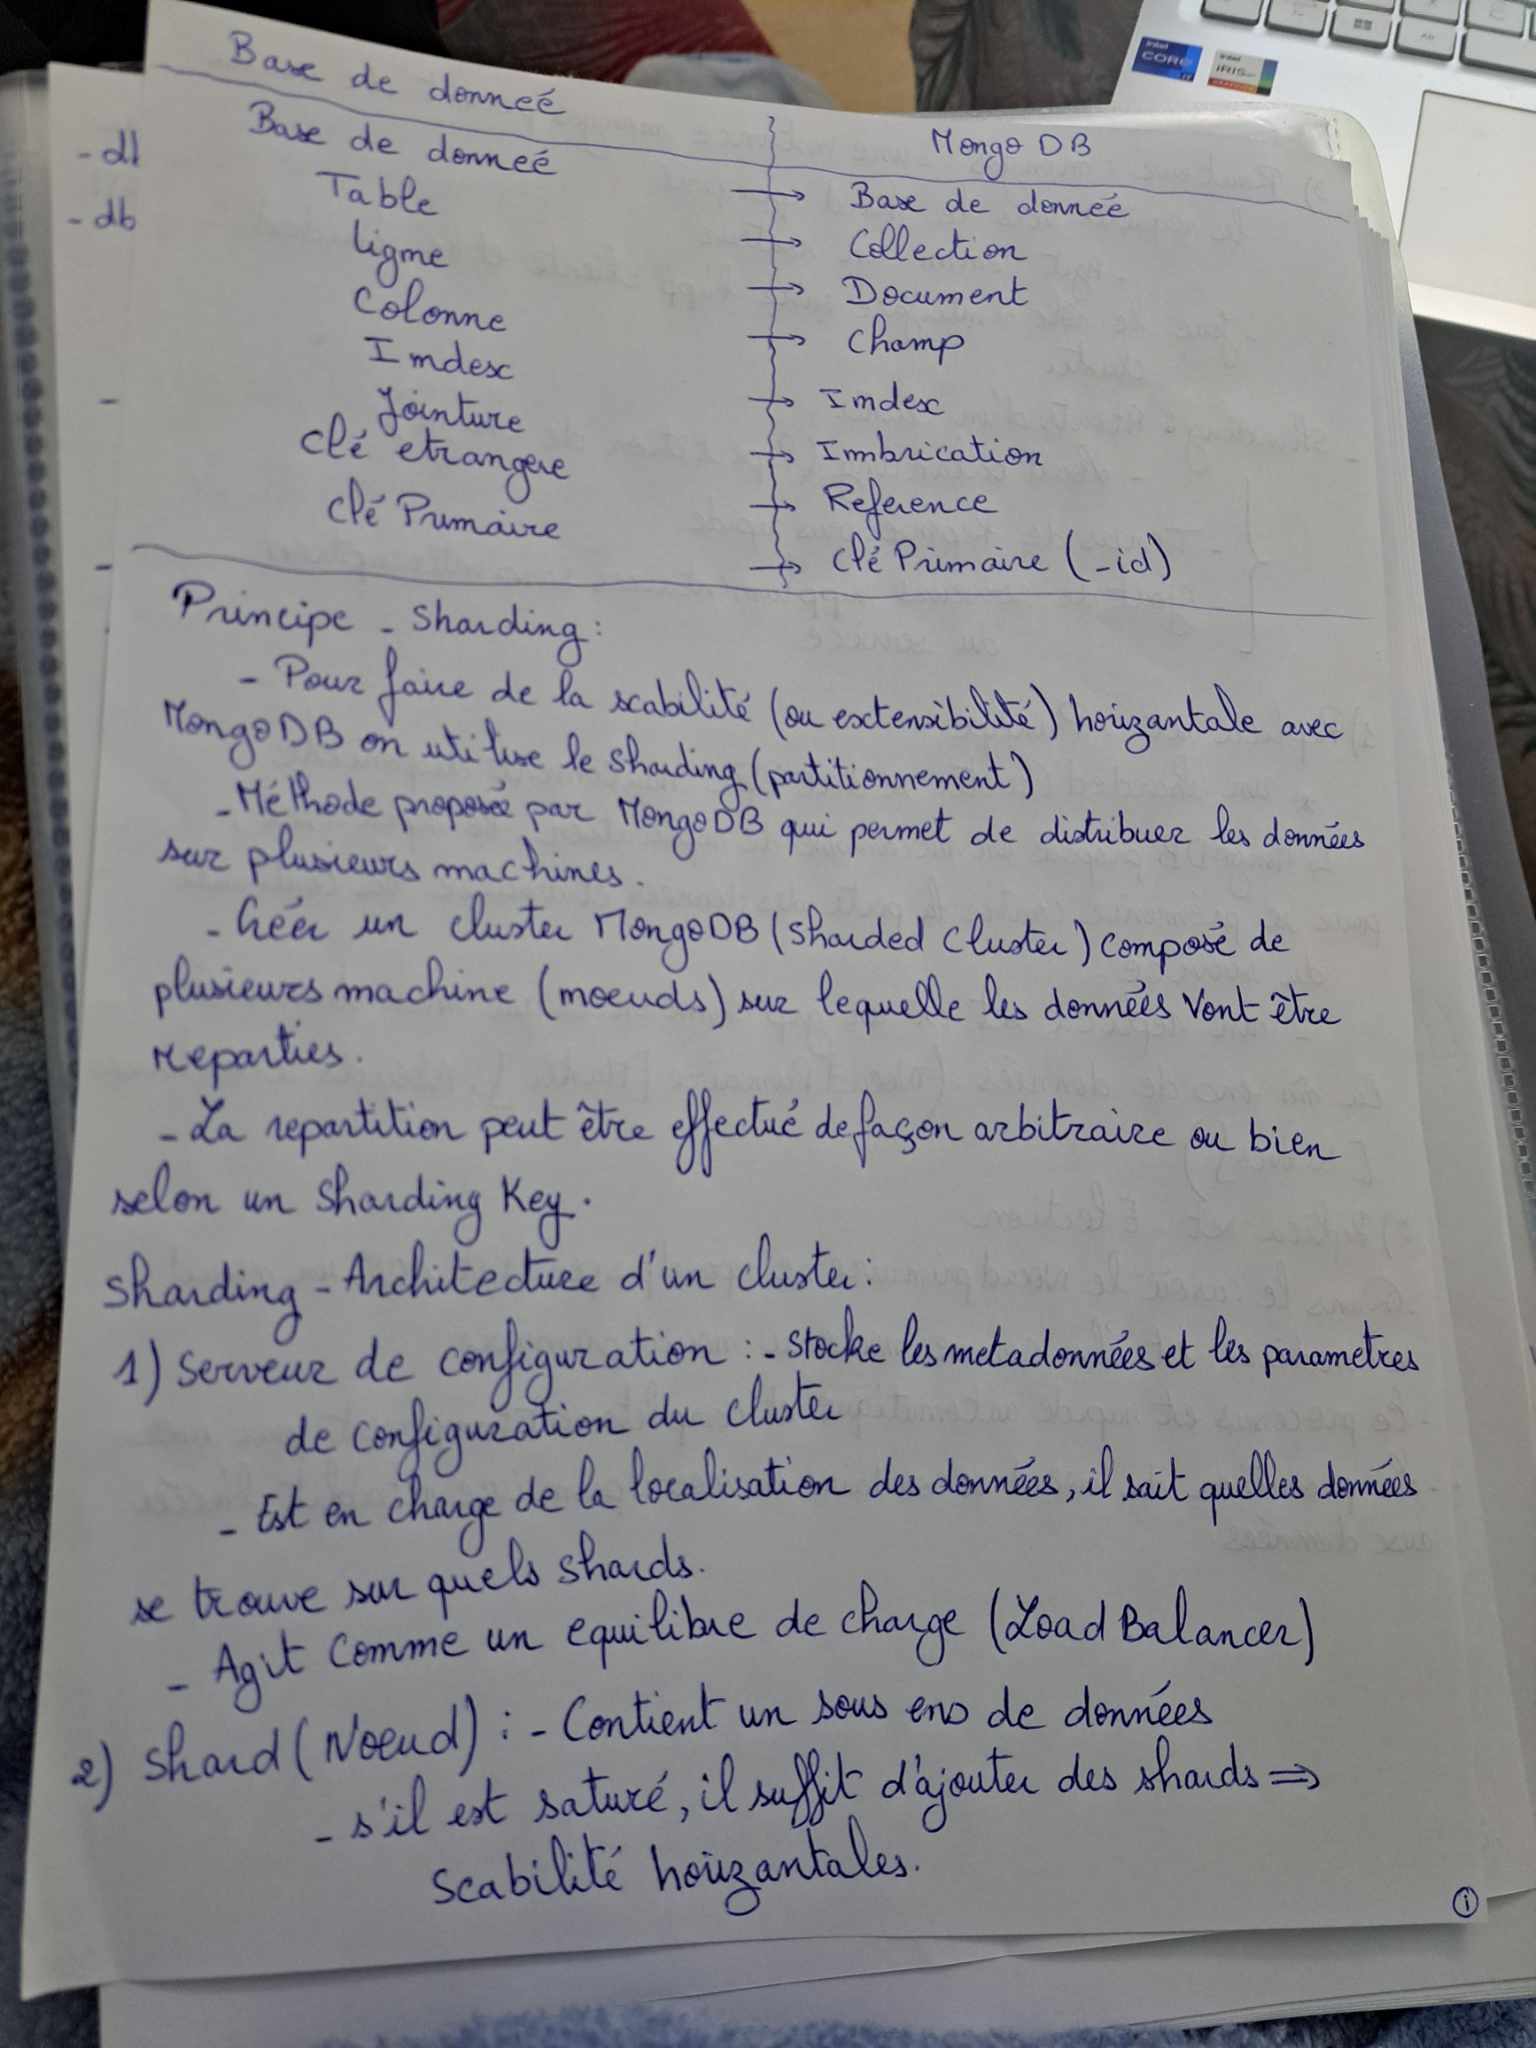 Base de donneé
Mongo DB
Base de donneé → Base de donneé
Table → Collection
ligne → Document
Colonne → Champ
Index → Index
Jointure → Imbrication
Clé etrangere → Reference
Clé Primaire → Clé Primaire (_id)
- dl
- db
Principe - Sharding :
- Pour faire de la scabilité (ou extensibilité) horizantale avec
MongoDB on utilise le Sharding (partitionnement)
- Méthode proposée par MongoDB qui permet de distribuer les données
sur plusieurs machines.
- Créer un cluster MongoDB (Sharded Cluster) composé de
plusieurs machine (noeuds) sur lequelle les données vont être
reparties.
- La repartition peut être effectué de façon arbitraire ou bien
selon un Sharding Key.
Sharding - Architecture d'un cluster :
1) Serveur de configuration : - Stocke les metadonnées et les parametres
de configuration du cluster
- Est en charge de la localisation des données, il sait quelles données
se trouve sur quels shards.
- Agit Comme un equilibre de charge (Load Balancer)
2) Shard (Noeud) : - Contient un sous ens de données
- s'il est saturé, il suffit d'ajouter des shards ⇒
Scabilité horizantales.
i
intel
CORE
i7
intel
iRIS